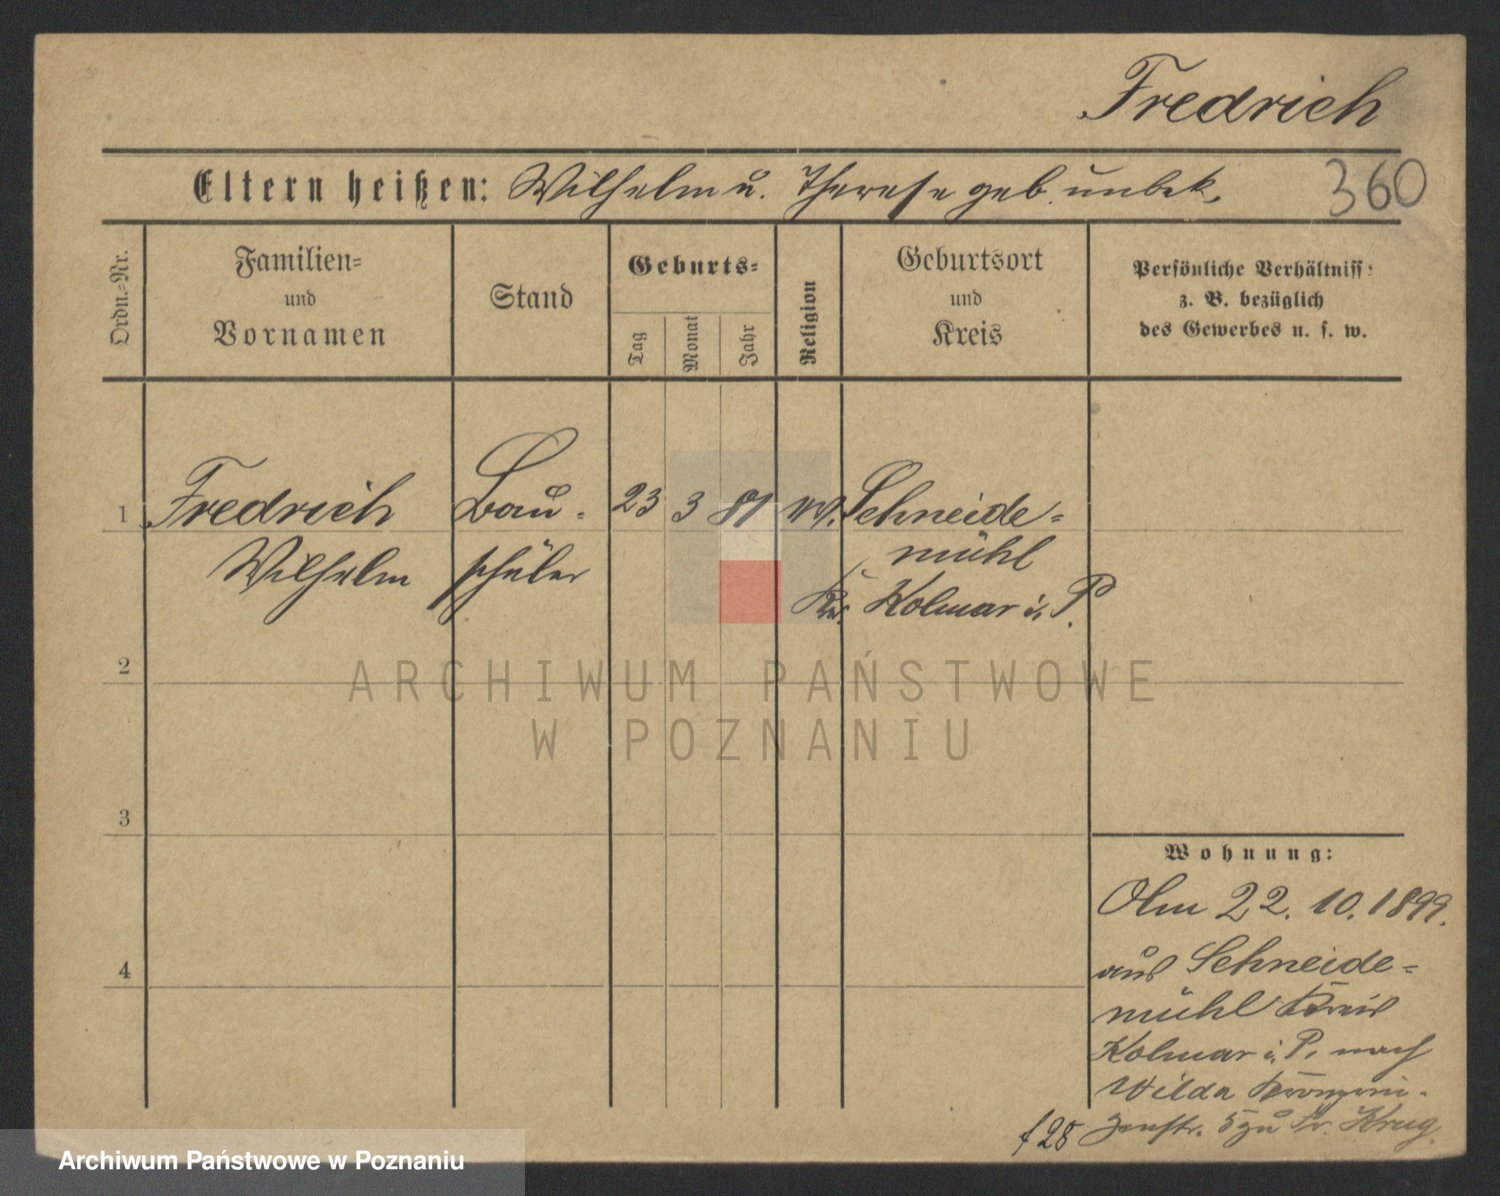 Fredrich
Eltern heißen: Wilhelm u. Therese geb. unbek.
360
Ordn.-Nr.
Familien-
und
Vornamen
Stand
Geburts-
Tag
Monat
Jahr
Religion
Geburtsort
und
Kreis
Persönliche Verhältniss:
z. B. bezüglich
des Gewerbes u. s. w.
1 Fredrich Bau- 23 3 81 Schneide-
Wilhelm schüler mühl
Kr. Kolmar i. P.
2
3
4
Wohnung:
Am 22. 10. 1899.
aus Schneide-
mühl Kreis
Kolmar i. P. nach
Wilda Kronprin-
zenstr. 5 zu Fr. Krug.
f 28
ARCHIWUM PAŃSTWOWE
W POZNANIU
Archiwum Państwowe w Poznaniu